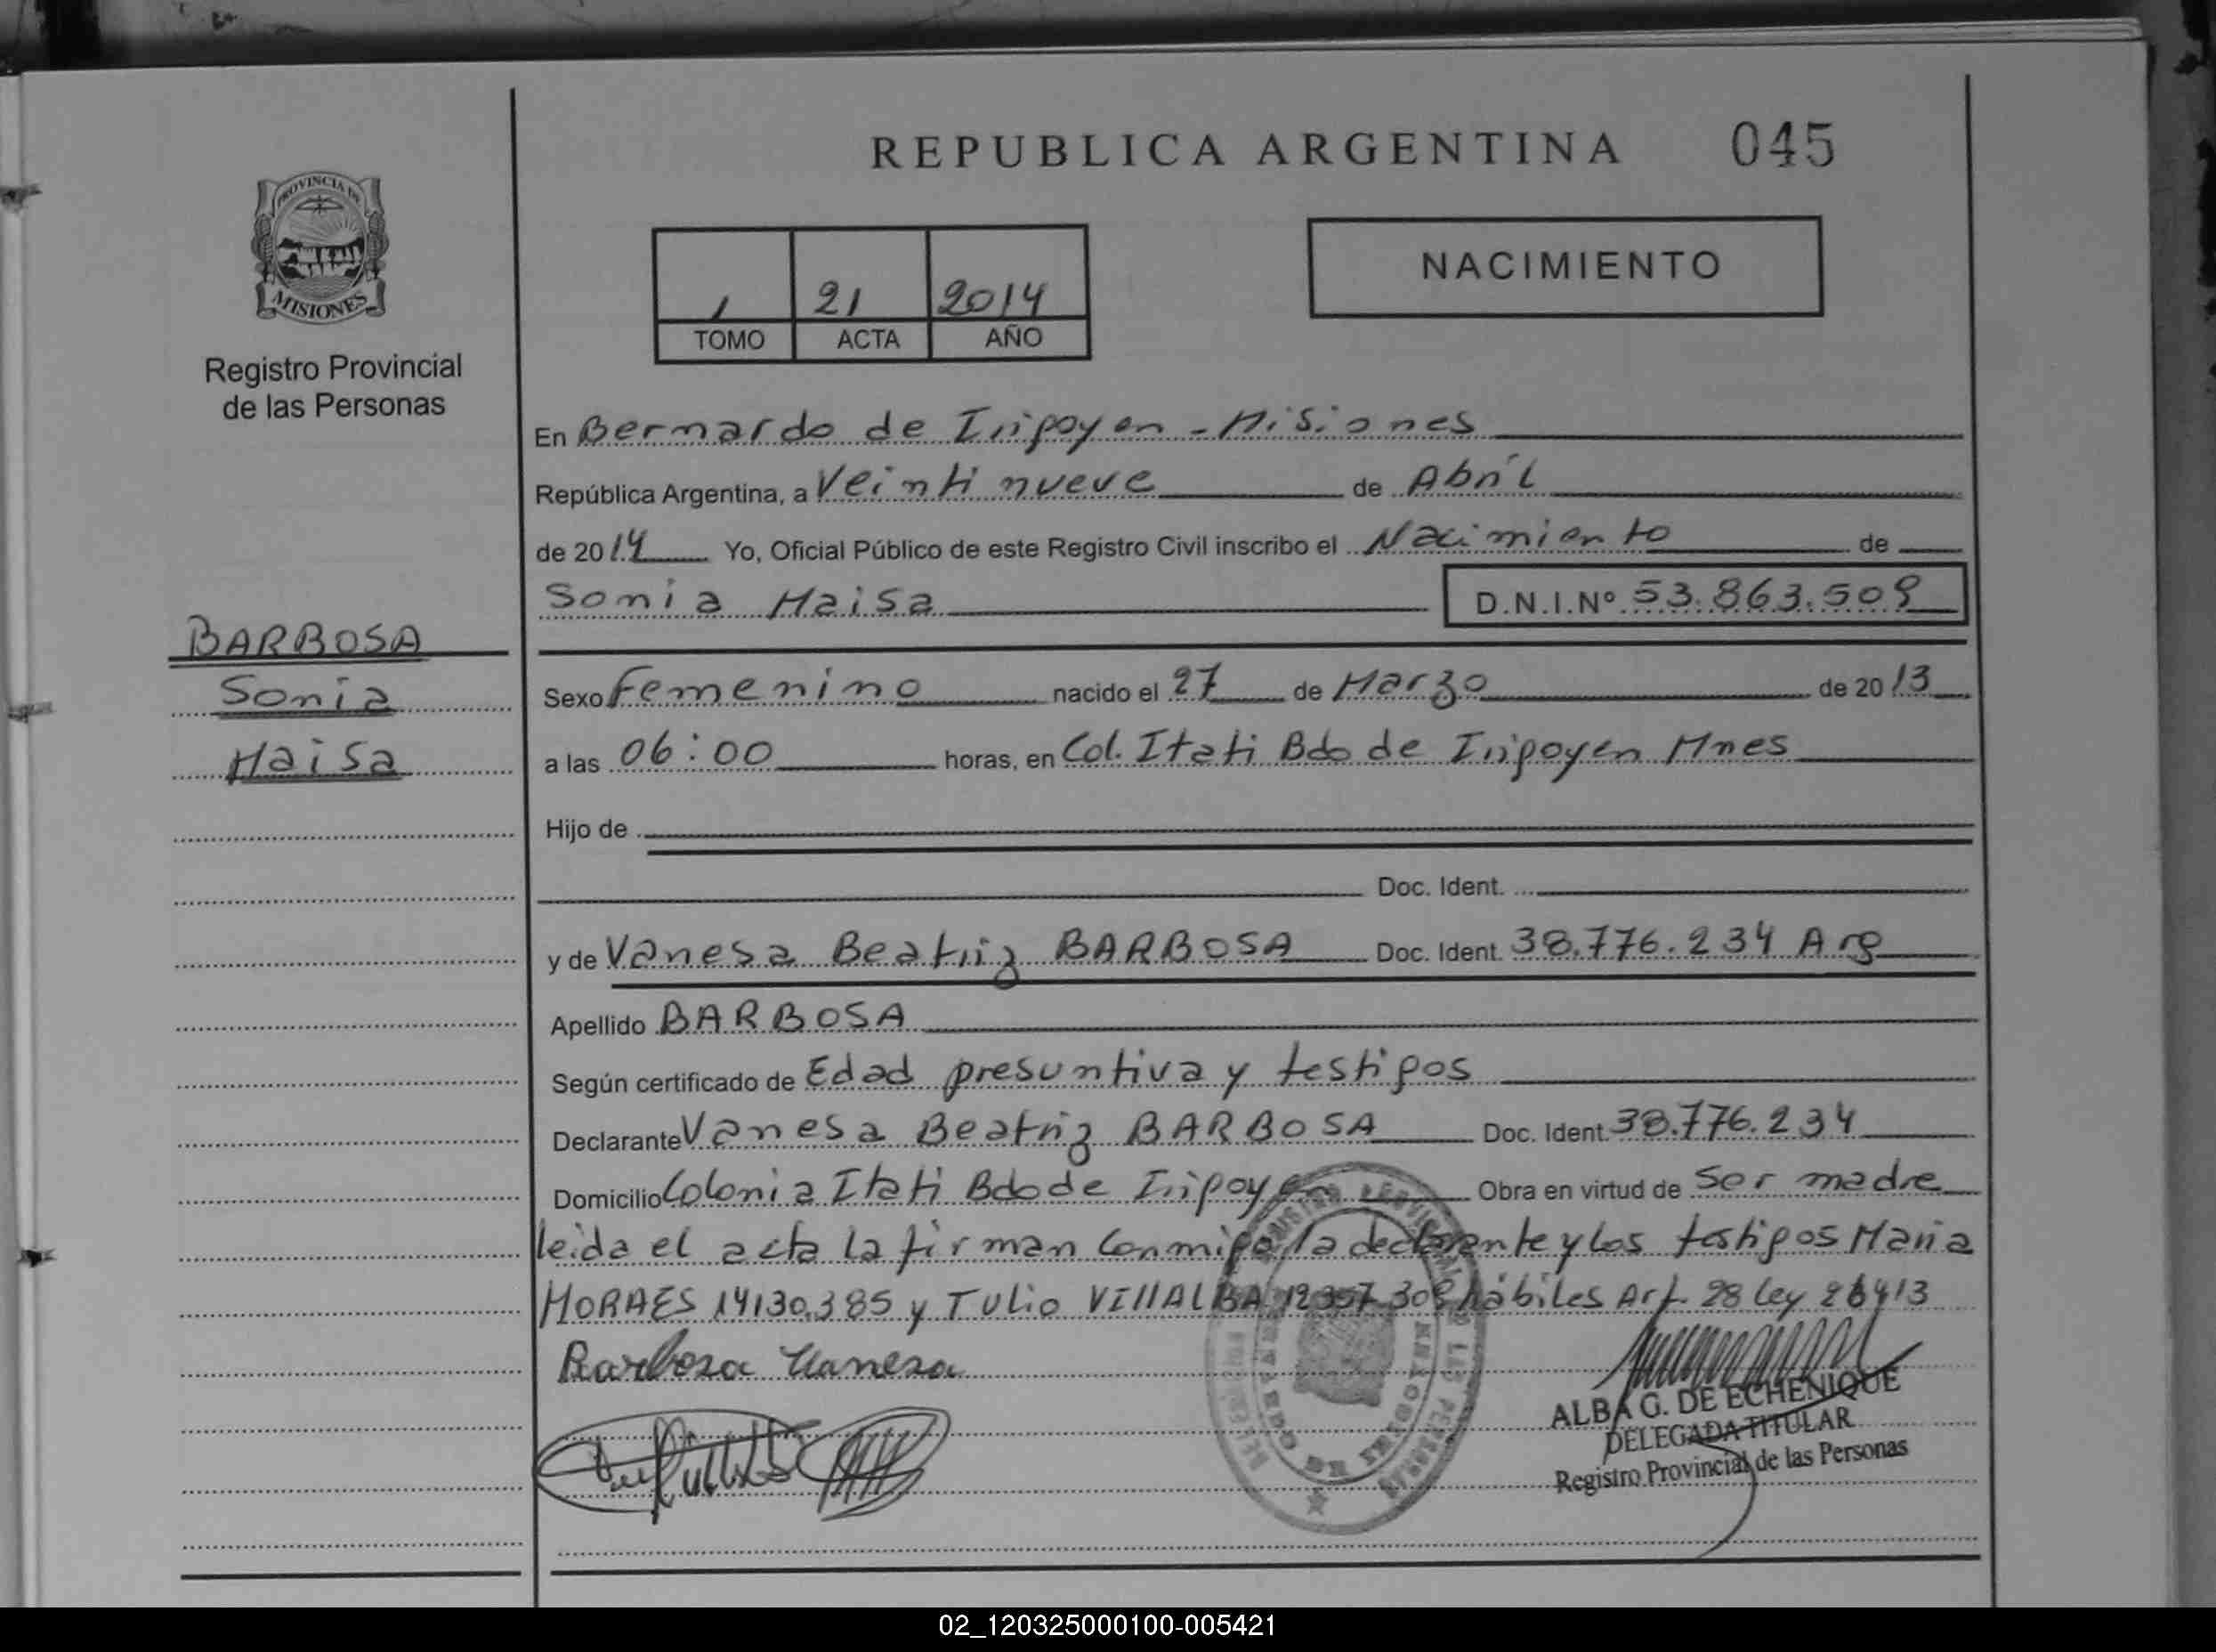 REPUBLICA ARGENTINA 045
PROVINCIA DE
MISIONES
Registro Provincial
de las Personas
1 21 2014
TOMO ACTA AÑO
NACIMIENTO
En Bernardo de Irigoyen - Misiones
República Argentina, a Veinti nueve de Abril
de 2014 Yo, Oficial Público de este Registro Civil inscribo el Nacimiento de
Sonia Maisa D.N.I.Nº 53.863.509
BARBOSA
Sonia
Maisa
Sexo Femenino nacido el 27 de Marzo de 2013
a las 06:00 horas, en Col. Itati Bdo de Irigoyen Mnes
Hijo de
Doc. Ident.
y de Vanesa Beatriz BARBOSA Doc. Ident. 38.776.234 Arg
Apellido BARBOSA
Según certificado de Edad presuntiva y testigos
Declarante Vanesa Beatriz BARBOSA Doc. Ident. 38.776.234
Domicilio Colonia Itati Bdo de Irigoyen Obra en virtud de Ser madre
leida el acta la firman Conmigo la declarante y los testigos Maria
MORAES 14130.385 y Tulio VIllALBA 12357.309 hábiles Art. 28 Ley 26413
Barboza Vanesa
ALBA G. DE ECHENIQUE
DELEGADA TITULAR
Registro Provincial de las Personas
02_120325000100-005421